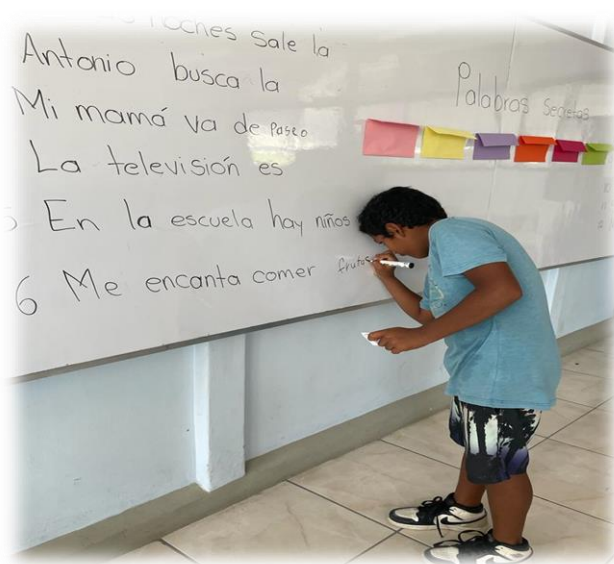 noches sale la
Antonio busca la
Mi mamá va de Paseo
La televisión es
5 En la escuela hay niños
6 Me encanta comer frutas
Palabras secretas